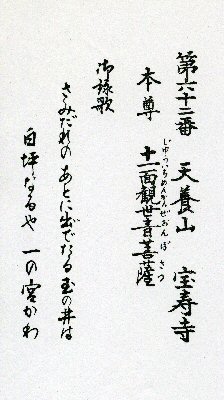 第六十二番　天養山　宝寿寺
本尊　十一面観世音菩薩
じゅういちめんかんぜおんぼさつ
御詠歌
さみだれの あとに出でたる 玉の井は
白坪なるや 一の宮かわ